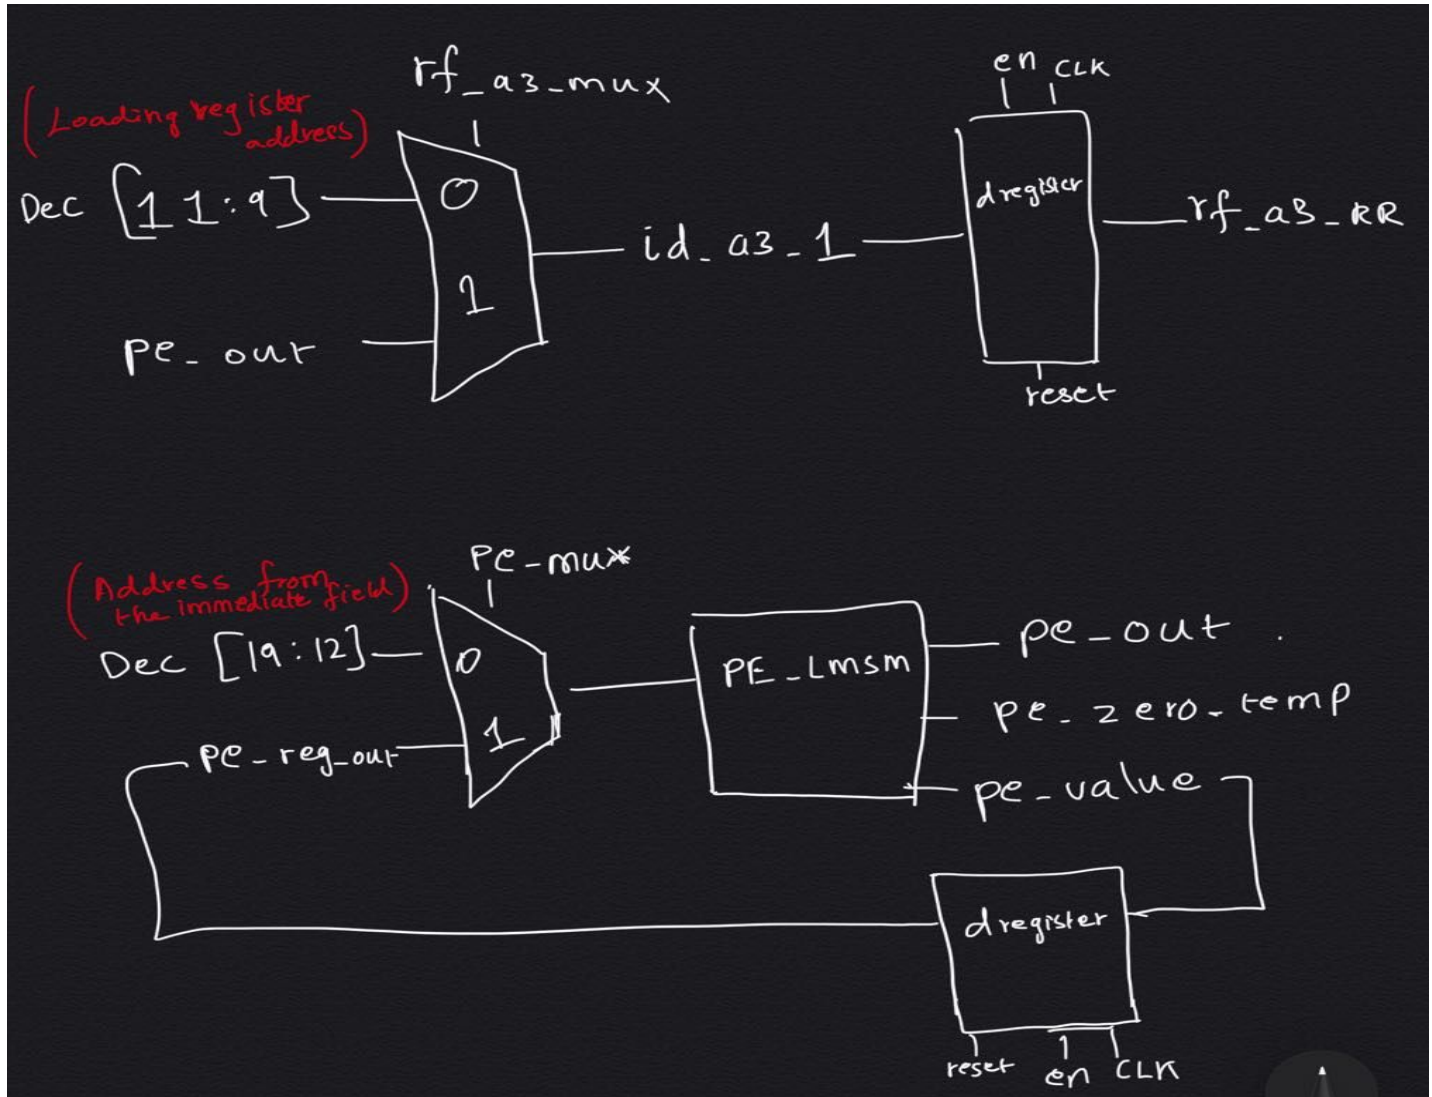 rf_a3_mux
en CLK
(Loading register
address)
Dec [11:9]
0
1
pe_out
id_a3_1
dregister
rf_a3_RR
reset
PE_mux
(Address from
the immediate field)
Dec [19:12]
0
1
pe_reg_out
PE_Lmsm
pe_out
pe_zero_temp
pe_value
dregister
reset en CLK